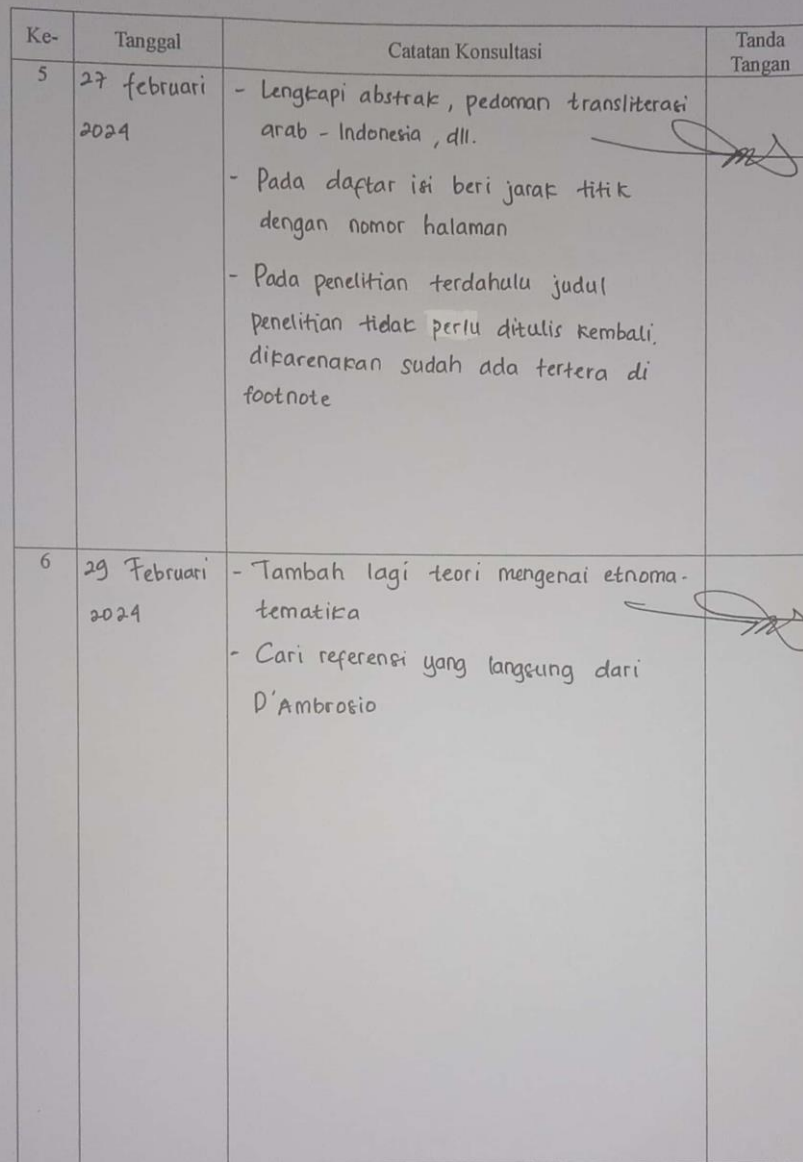 Ke- Tanggal Catatan Konsultasi Tanda
Tangan
5 27 februari - Lengkapi abstrak, pedoman transliterasi
2024 arab - Indonesia, dll.
- Pada daftar isi beri jarak titik
dengan nomor halaman
- Pada penelitian terdahulu judul
penelitian tidak perlu ditulis kembali.
dikarenakan sudah ada tertera di
footnote
6 29 Februari - Tambah lagi teori mengenai etnoma-
2024 tematika
- Cari referensi yang langsung dari
D'Ambrosio